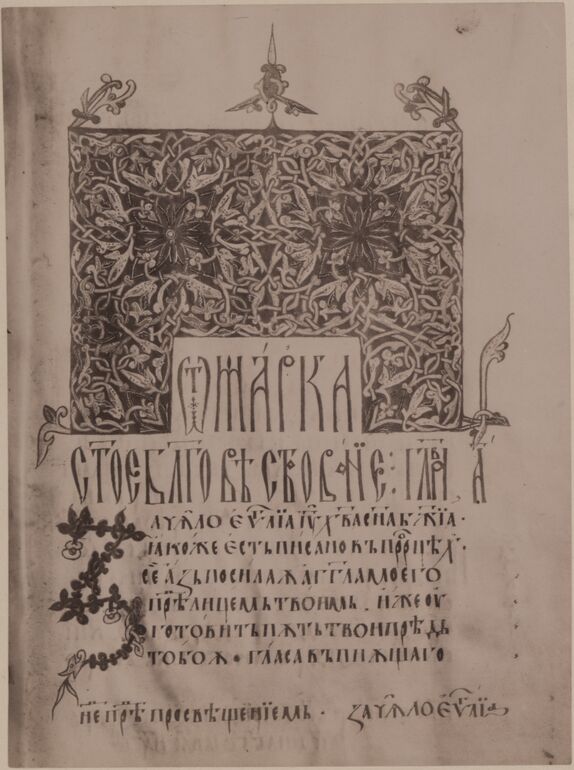 Ѿ МА́РКА
СТ҃ОЕ БЛГ҃ОВѢСТВОВАНЇЕ : ГЛА҃В А҃
Зачѧло еѵ҃лїа і҃у х҃ва сн҃а бж҃їа ·
ꙗкоже есть писано въ прⷪ҇рцѣхⸯ ·
се азь посилаѫ аг҃гла моего
прѣⷣ лицемь твоимь . иже оу
готовить пѫть твои прѣдь
тобоѫ · гласа въпиѫщаго
не прѣⷣ просвѣщенїемь · зачѧло еѵ҃лїа